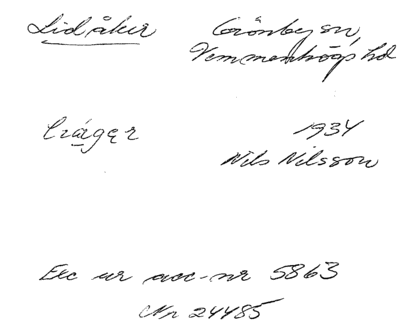 Lidåker Grönby sn,
Vemmenhögs hd
1934
Nils Nilsson
Exc ur acc-nr 5863
Nr 24485